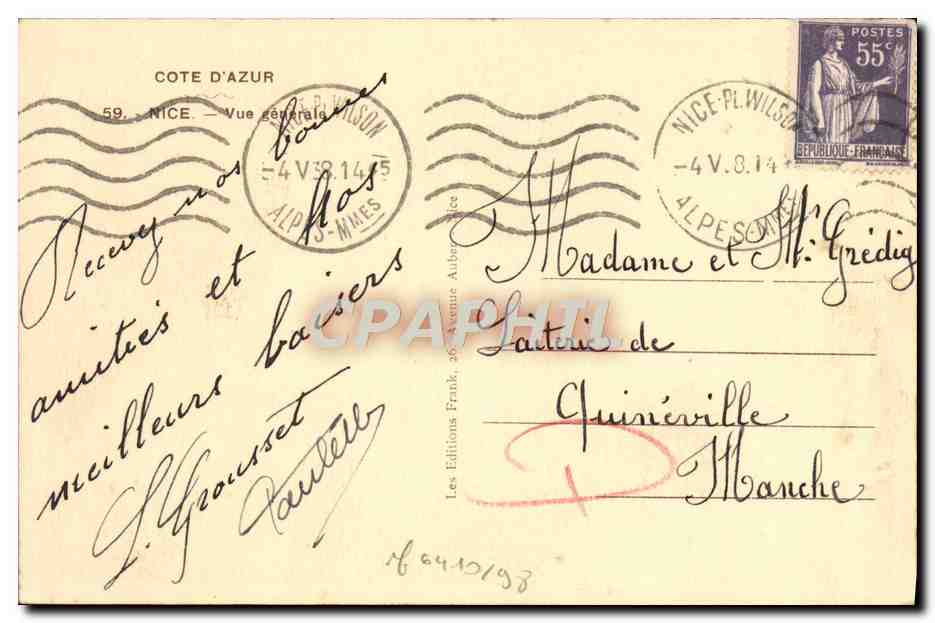 COTE D'AZUR
59. - NICE. - Vue générale
NICE-Pl. WILSON
-4 V 38.14 15
ALPES-MMES
Recevez nos bonnes
amitiés et nos
meilleurs baisers
L. Grousset
Paulette
Les Editions Frank, 26, Avenue Auber, Nice
NICE-PL. WILSON
-4 V.8.14
ALPES-MMES
POSTES
55c
REPUBLIQUE-FRANCAISE
Madame et Mr. Grédig
Laiterie de
Quinéville
Manche
CPAPHIL